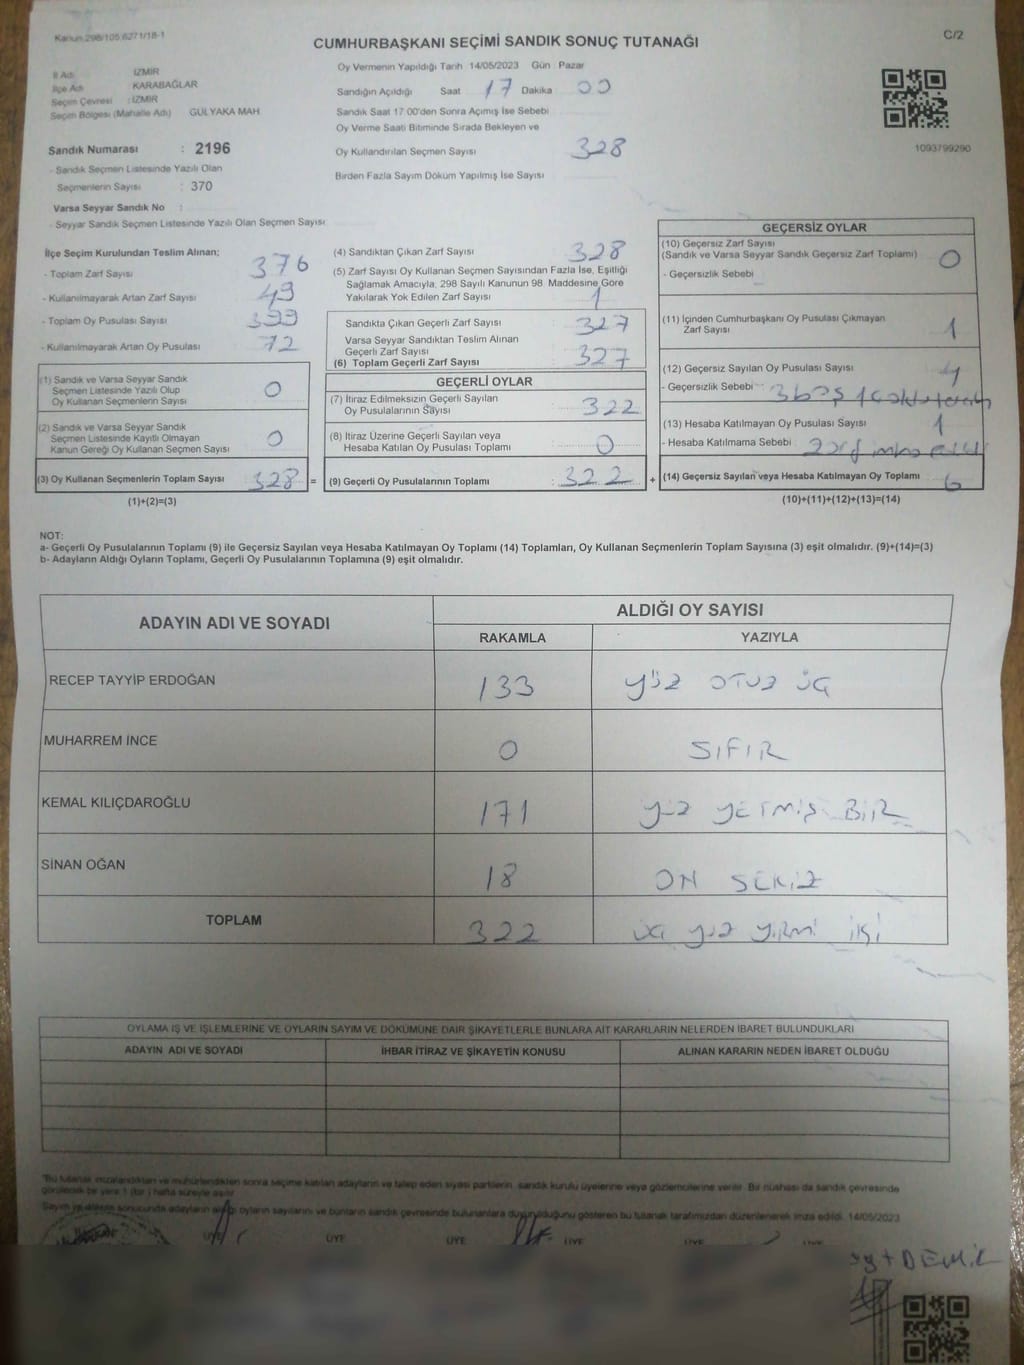 Kanun 298/105 6271/18-1
C/2
CUMHURBAŞKANI SEÇİMİ SANDIK SONUÇ TUTANAĞI
İl Adı : İZMİR
İlçe Adı KARABAĞLAR
Seçim Çevresi : İZMİR
Seçim Bölgesi (Mahalle Adı) GÜLYAKA MAH
Sandık Numarası : 2196
- Sandık Seçmen Listesinde Yazılı Olan
Seçmenlerin Sayısı : 370
Varsa Seyyar Sandık No :
- Seyyar Sandık Seçmen Listesinde Yazılı Olan Seçmen Sayısı
Oy Vermenin Yapıldığı Tarih 14/05/2023 Gün Pazar
Sandığın Açıldığı Saat 17 Dakika 00
Sandık Saat 17.00'den Sonra Açımış İse Sebebi
Oy Verme Saati Bitiminde Sırada Bekleyen ve
Oy Kullandırılan Seçmen Sayısı 328
Birden Fazla Sayım Döküm Yapılmış İse Sayısı
1093799290
İlçe Seçim Kurulundan Teslim Alınan;
- Toplam Zarf Sayısı 376
- Kullanılmayarak Artan Zarf Sayısı 49
- Toplam Oy Pusulası Sayısı 399
- Kullanılmayarak Artan Oy Pusulası 72
(1) Sandık ve Varsa Seyyar Sandık
Seçmen Listesinde Yazılı Olup
Oy Kullanan Seçmenlerin Sayısı 0
(2) Sandık ve Varsa Seyyar Sandık
Seçmen Listesinde Kayıtlı Olmayan
Kanun Gereği Oy Kullanan Seçmen Sayısı 0
(3) Oy Kullanan Seçmenlerin Toplam Sayısı 328 =
(1)+(2)=(3)
(4) Sandıktan Çıkan Zarf Sayısı 328
(5) Zarf Sayısı Oy Kullanan Seçmen Sayısından Fazla İse, Eşitliği
Sağlamak Amacıyla, 298 Sayılı Kanunun 98. Maddesine Göre
Yakılarak Yok Edilen Zarf Sayısı 1
Sandıkta Çıkan Geçerli Zarf Sayısı : 327
Varsa Seyyar Sandıktan Teslim Alınan
Geçerli Zarf Sayısı :
(6) Toplam Geçerli Zarf Sayısı : 327
GEÇERLİ OYLAR
(7) İtiraz Edilmeksizin Geçerli Sayılan
Oy Pusulalarının Sayısı : 322
(8) İtiraz Üzerine Geçerli Sayılan veya
Hesaba Katılan Oy Pusulası Toplamı : 0
(9) Geçerli Oy Pusulalarının Toplamı : 322 +
GEÇERSİZ OYLAR
(10) Geçersiz Zarf Sayısı
(Sandık ve Varsa Seyyar Sandık Geçersiz Zarf Toplamı) 0
- Geçersizlik Sebebi
(11) İçinden Cumhurbaşkanı Oy Pusulası Çıkmayan
Zarf Sayısı 1
(12) Geçersiz Sayılan Oy Pusulası Sayısı 4
- Geçersizlik Sebebi 3 boş 1
(13) Hesaba Katılmayan Oy Pusulası Sayısı 1
- Hesaba Katılmama Sebebi zarf imha
(14) Geçersiz Sayılan veya Hesaba Katılmayan Oy Toplamı 6
(10)+(11)+(12)+(13)=(14)
NOT:
a- Geçerli Oy Pusulalarının Toplamı (9) ile Geçersiz Sayılan veya Hesaba Katılmayan Oy Toplamı (14) Toplamları, Oy Kullanan Seçmenlerin Toplam Sayısına (3) eşit olmalıdır. (9)+(14)=(3)
b- Adayların Aldığı Oyların Toplamı, Geçerli Oy Pusulalarının Toplamına (9) eşit olmalıdır.
ADAYIN ADI VE SOYADI
ALDIĞI OY SAYISI
RAKAMLA YAZIYLA
RECEP TAYYİP ERDOĞAN 133 YÜZ OTUZ ÜÇ
MUHARREM İNCE 0 SIFIR
KEMAL KILIÇDAROĞLU 171 YÜZ YETMİŞ BİR
SİNAN OĞAN 18 ON SEKİZ
TOPLAM 322 ÜÇ YÜZ YİRMİ İKİ
OYLAMA İŞ VE İŞLEMLERİNE VE OYLARIN SAYIM VE DÖKÜMÜNE DAİR ŞİKAYETLERLE BUNLARA AİT KARARLARIN NELERDEN İBARET BULUNDUKLARI
ADAYIN ADI VE SOYADI İHBAR İTİRAZ VE ŞİKAYETİN KONUSU ALINAN KARARIN NEDEN İBARET OLDUĞU
"Bu tutanak imzalandıktan ve mühürlendikten sonra seçime katılan adayların ve talep eden siyasi partilerin, sandık kurulu üyelerine veya gözlemcilerine verilir. Bir nüshası da sandık çevresinde
görülecek bir yere 1 (bir) hafta süreyle asılır
Sayım ve döküm sonucunda adayların aldığı oyların sayılarını ve bunların sandık çevresinde bulunanlara duyurulduğunu gösteren bu tutanak tarafımızdan düzenlenerek imza edildi. 14/05/2023
ÜYE ÜYE ÜYE ÜYE ÜYE
DEMİR